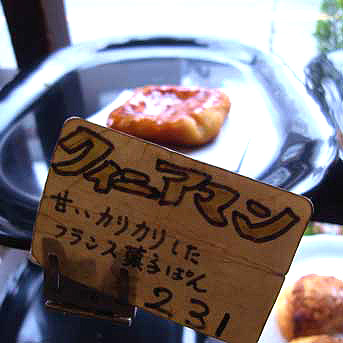 クイニーアマン
甘いカリカリした
フランス菓子ぱん
231